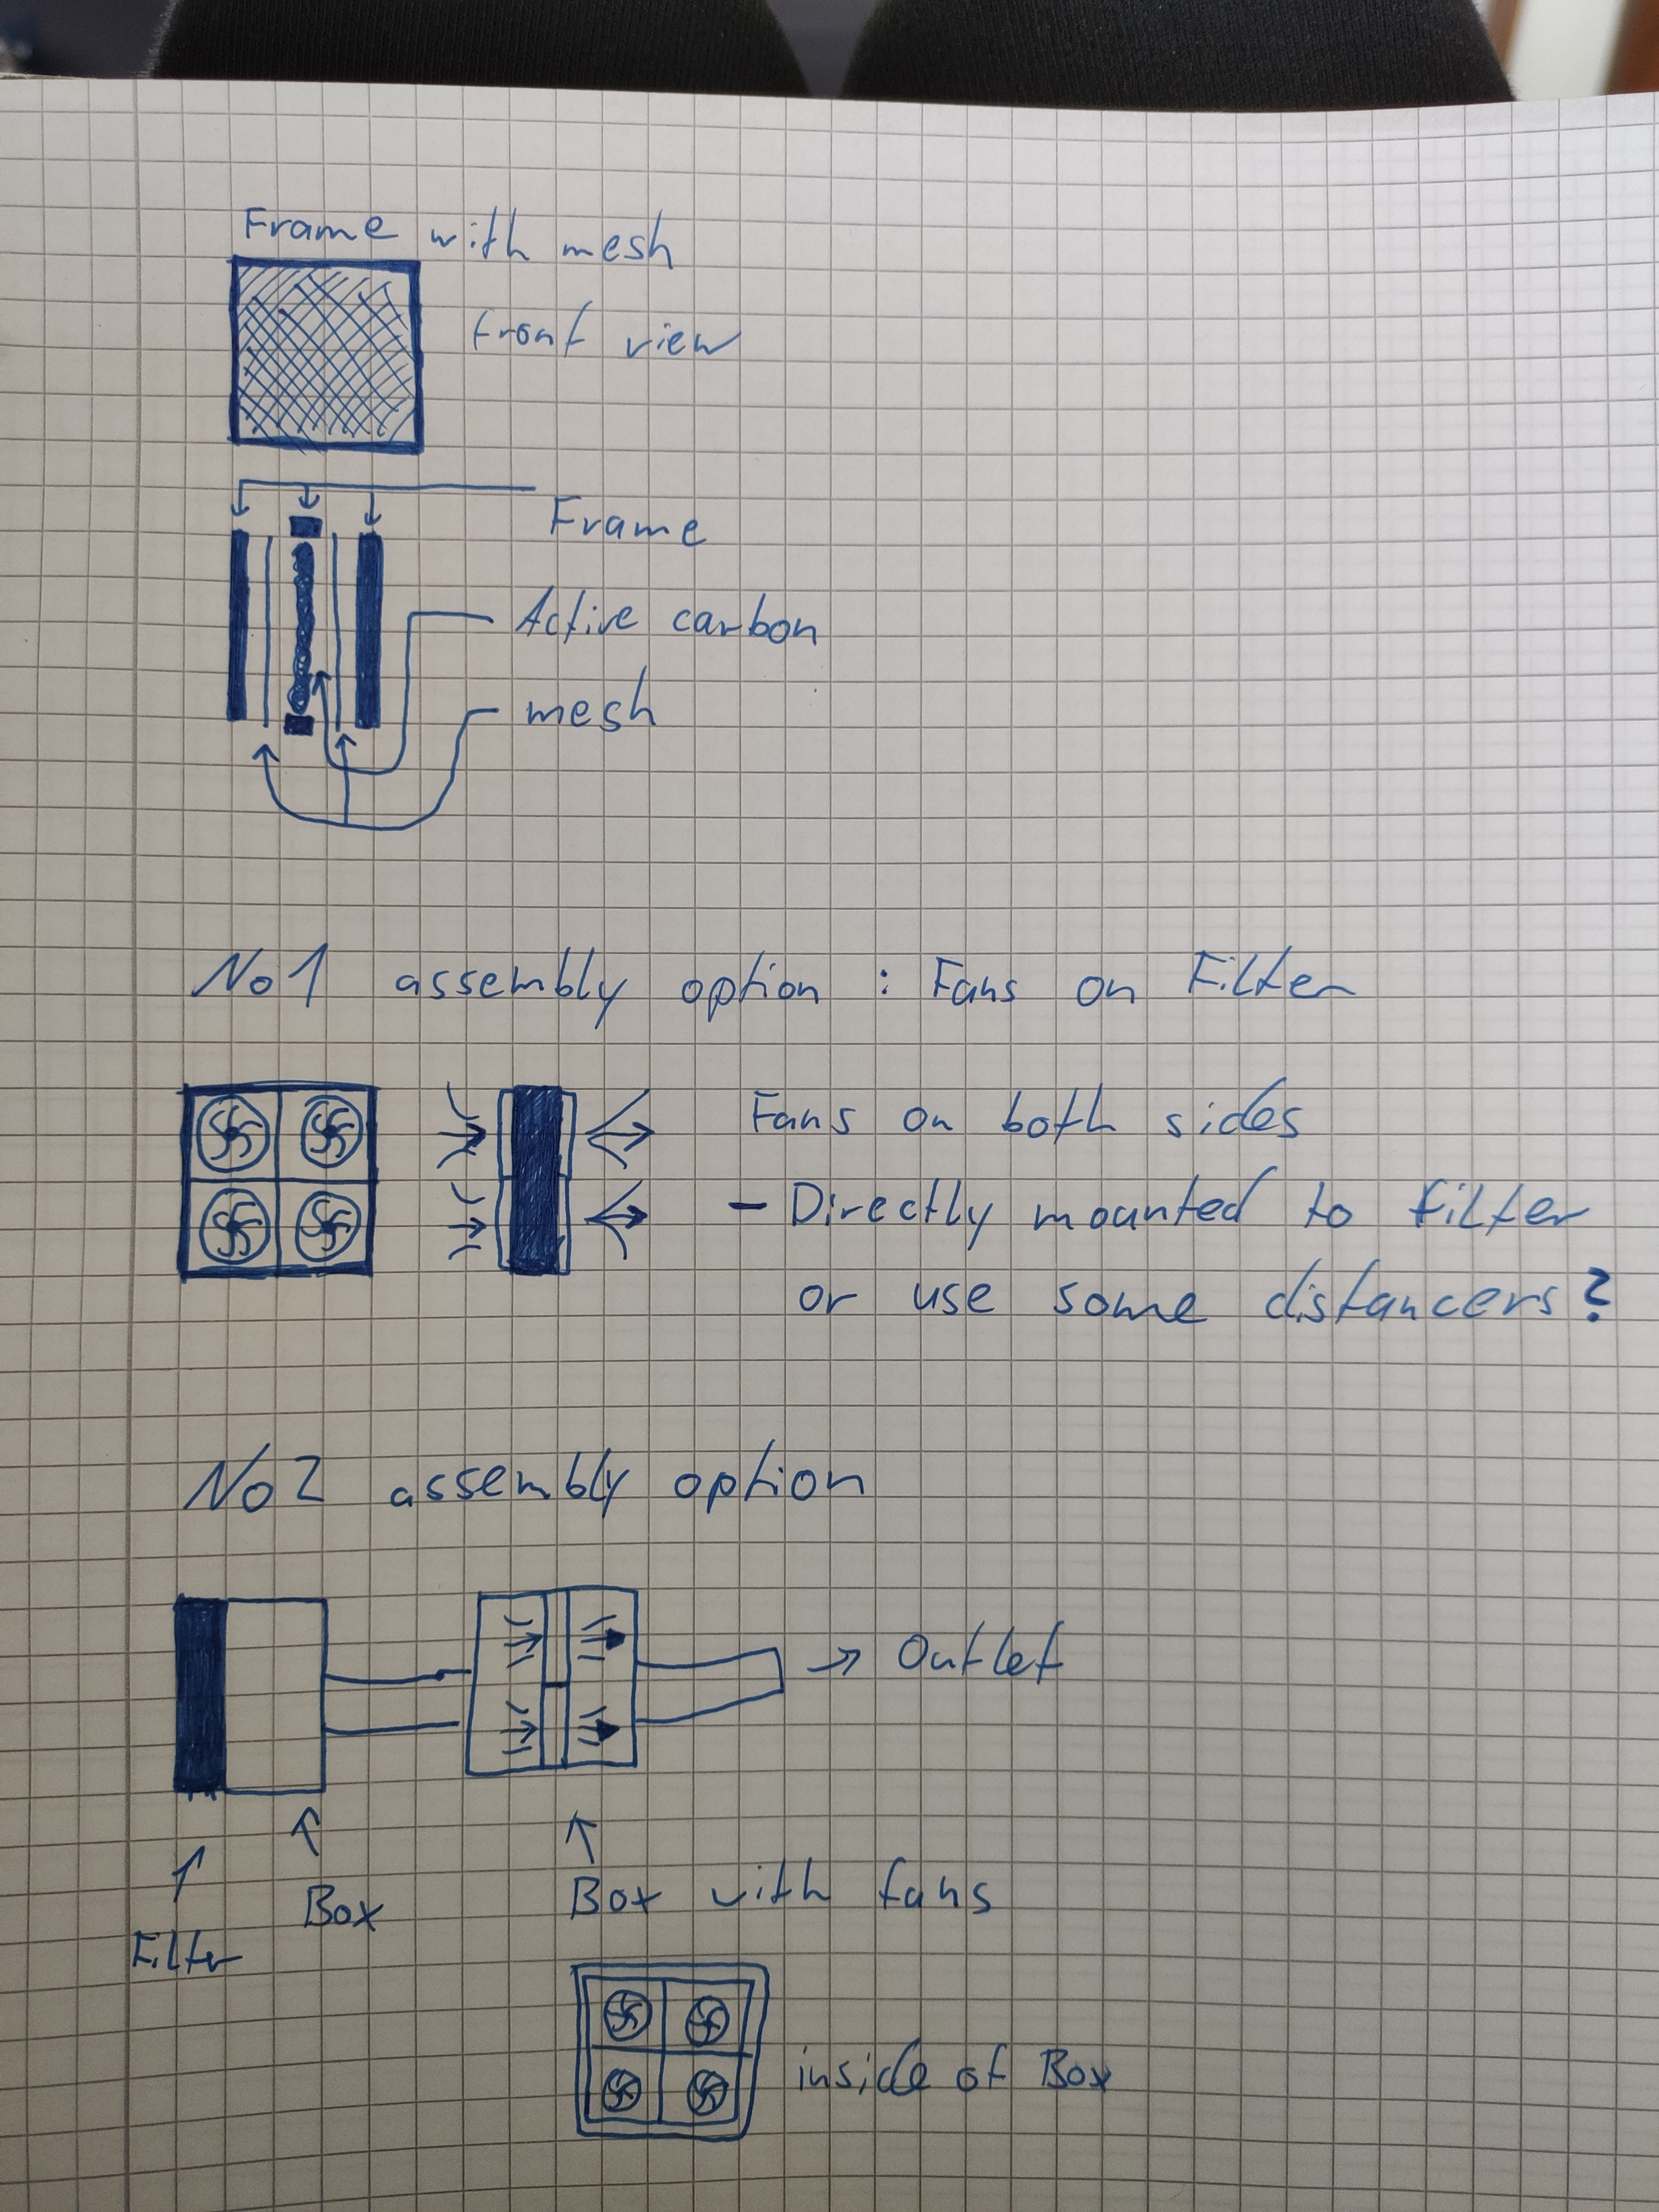 Frame with mesh
front view
Frame
Active carbon
mesh
No1 assembly option : Fans on Filter
Fans on both sides
- Directly mounted to filter
or use some distancers?
No2 assembly option
→ Outlet
Box with fans
Box
Filter
inside of Box